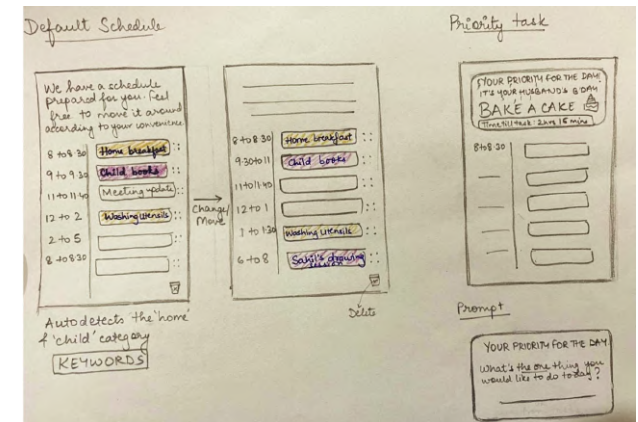 Default Schedule
We have a schedule
prepared for you. Feel
free to move it around
according to your convenience
8 to 8:30 Home breakfast
9 to 9:30 Child books
11 to 11:40 Meeting update
12 to 2 Washing Utensils
2 to 5
8 to 8:30
Autodetects the 'home'
& 'child' category
KEYWORDS
Change/
Move
8 to 8:30 Home breakfast
9:30 to 11 Child books
11 to 11:40
12 to 1
1 to 1:30 Washing Utensils
6 to 8 Sahil's drawing
Delete
Priority task
YOUR PRIORITY FOR THE DAY
IT'S YOUR HUSBAND'S B'DAY
BAKE A CAKE
Time till task: 2 hrs 15 mins
8 to 8:30
Prompt
YOUR PRIORITY FOR THE DAY
What's the one thing you
would like to do today?